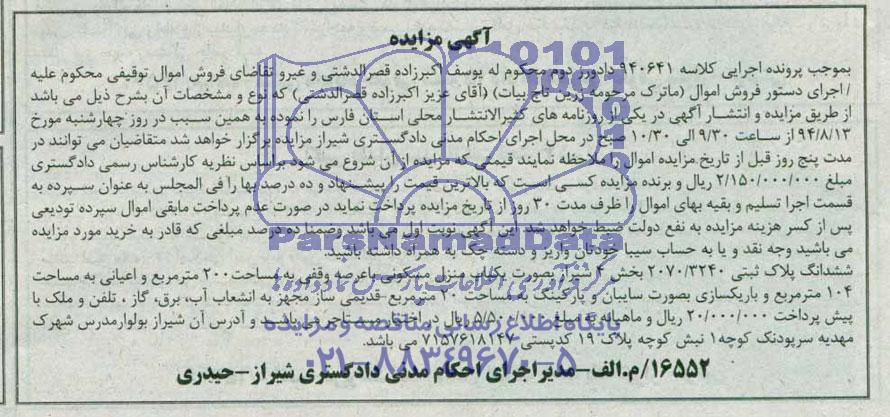 آگهی مزایده
بموجب پرونده اجرایی کلاسه ۹۴۰۶۴۱ دادورز دوم محکوم له یوسف اکبرزاده قصرالدشتی و غیرو تقاضای فروش اموال توقیفی محکوم علیه
/ اجرای دستور فروش اموال (ماترک مرحومه زرین تاج بیات) (آقای عزیز اکبرزاده قصرالدشتی) که نوع و مشخصات آن بشرح ذیل می باشد
از طریق مزایده و انتشار آگهی در یکی از روزنامه های کثیرالانتشار محلی استان فارس را نموده به همین سبب در روز چهارشنبه مورخ
۹۴/۸/۱۳ از ساعت ۹/۳۰ الی ۱۰/۳۰ صبح در محل اجرای احکام مدنی دادگستری شیراز مزایده برگزار خواهد شد متقاضیان می توانند در
مدت پنج روز قبل از تاریخ مزایده اموال را ملاحظه نمایند قیمتی که مزایده از آن شروع می شود براساس نظریه کارشناس رسمی دادگستری
مبلغ ۲/۱۵۰/۰۰۰/۰۰۰ ریال و برنده مزایده کسی است که بالاترین قیمت را پیشنهاد و ده درصد بها را فی المجلس به عنوان سپرده به
قسمت اجرا تسلیم و بقیه بهای اموال را ظرف مدت ۳۰ روز از تاریخ مزایده پرداخت نماید در صورت عدم پرداخت مابقی اموال سپرده تودیعی
پس از کسر هزینه مزایده به نفع دولت ضبط خواهد شد این آگهی نوبت اول می باشد وضمنا ده درصد مبلغی که قادر به خرید مورد مزایده
می باشید وجه نقد و یا به حساب سیبا خودتان واریز و دسته چک به همراه داشته باشید.
ششدانگ پلاک ثبتی ۲۰۷۰/۳۲۴۰ بخش ۴ بصورت یکباب منزل مسکونی باعرصه وقفی به مساحت ۲۰۰ مترمربع و اعیانی به مساحت
۱۰۴ مترمربع و باریکسازی بصورت سایبان و پارکینگ به مساحت ۲۰ مترمربع قدیمی ساز مجهز به انشعاب آب، برق، گاز ، تلفن و ملک با
پیش پرداخت ۲۰/۰۰۰/۰۰۰ ریال و ماهیانه به مبلغ ۵/۵۰۰/۰۰۰ ریال در اختیار می باشد و آدرس آن شیراز بولوارمدرس شهرک
مهدیه سرپودنک کوچه۱ نبش کوچه پلاک ۱۹ کدپستی ۷۱۵۷۶۱۸۱۴۷ می باشد.
۱۶۵۵۲/م.الف-مدیراجرای احکام مدنی دادگستری شیراز-حیدری
ParsNamadData
پایگاه اطلاع رسانی مناقصه و مزایده
۰۲۱-۸۸۳۴۹۶۷۰-۵